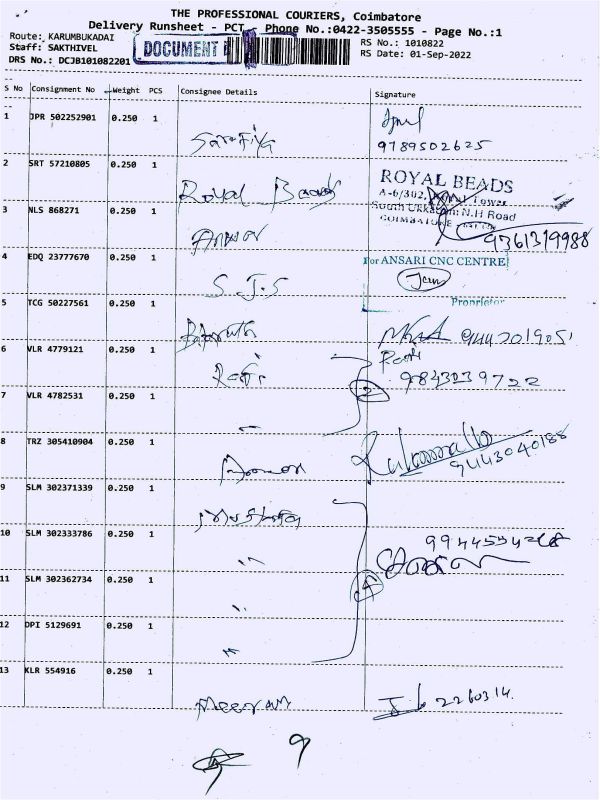 THE PROFESSIONAL COURIERS, Coimbatore
Delivery Runsheet - PCT - Phone No.:0422-3505555 - Page No.:1
Route: KARUMBUKADAI
Staff: SAKTHIVEL
DRS No.: DCJB101082201
DOCUMENT
RS No.: 1010822
RS Date: 01-Sep-2022
S No Consignment No Weight PCS Consignee Details Signature
1 JPR 502252901 0.250 1
9789502625
2 SRT 57210805 0.250 1 Royal Beads
ROYAL BEADS
A-6/302, Tower
South Ukkadam: N.H Road
COIMBATORE
3 NLS 868271 0.250 1 Anwar
9361319988
4 EDQ 23777670 0.250 1 S.J.S
For ANSARI CNC CENTRE
Proprietor
5 TCG 50227561 0.250 1
6 VLR 4779121 0.250 1 Rafi
9843039722
7 VLR 4782531 0.250 1 "
2
8 TRZ 305410904 0.250 1
9443040188
9 SLM 302371339 0.250 1 Mustafa
10 SLM 302333786 0.250 1 "
11 SLM 302362734 0.250 1 "
4
12 DPI 5129691 0.250 1 "
13 KLR 554916 0.250 1 Meeran
2260314
9